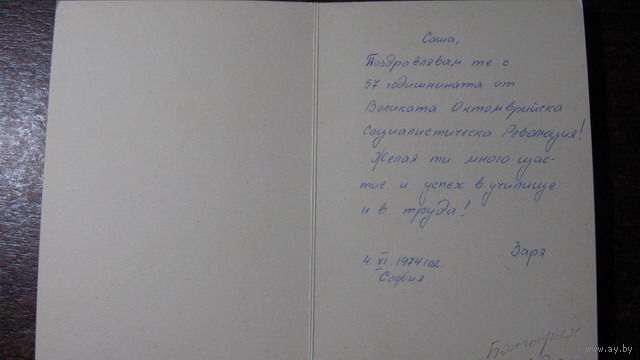 Саша,
Поздравлявам те с
57 годишнината от
Великата Октомврийска
Социалистическа Революция!
Желая ти много щас-
тие и успех в училище
и в труда!
Заря
4. XI. 1974 год.
София
Болгария
www.ay.by